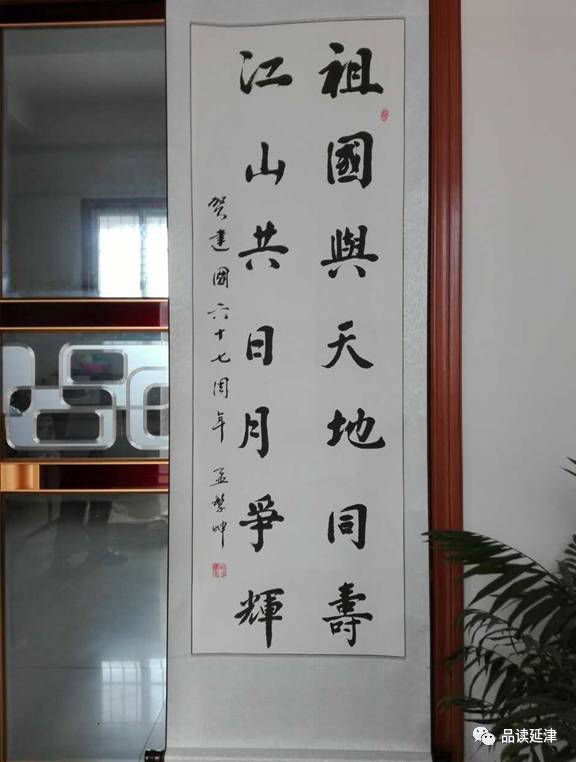 祖國與天地同壽
江山共日月爭輝
贺建國六十七周年
品读延津